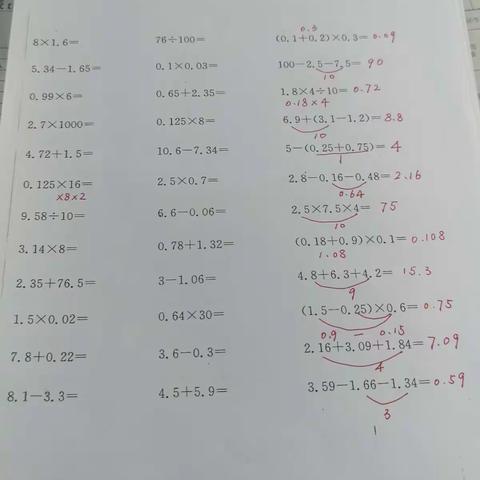 8×1.6=
76÷100=
0.3
(0.1+0.2)×0.3=0.09
5.34-1.65=
0.1×0.03=
100-2.5-7.5=90
10
0.99×6=
0.65+2.35=
1.8×4÷10=0.72
0.18×4
2.7×1000=
0.125×8=
6.9+(3.1-1.2)=8.8
10
4.72+1.5=
10.6-7.34=
5-(0.25+0.75)=4
1
0.125×16=
×8×2
2.5×0.7=
2.8-0.16-0.48=2.16
0.64
9.58÷10=
6.6-0.06=
2.5×7.5×4=75
10
3.14×8=
0.78+1.32=
(0.18+0.9)×0.1=0.108
1.08
2.35+76.5=
3-1.06=
4.8+6.3+4.2=15.3
9
1.5×0.02=
0.64×30=
(1.5-0.25)×0.6=0.75
0.9-0.15
7.8+0.22=
3.6-0.3=
2.16+3.09+1.84=7.09
4
8.1-3.3=
4.5+5.9=
3.59-1.66-1.34=0.59
3
1